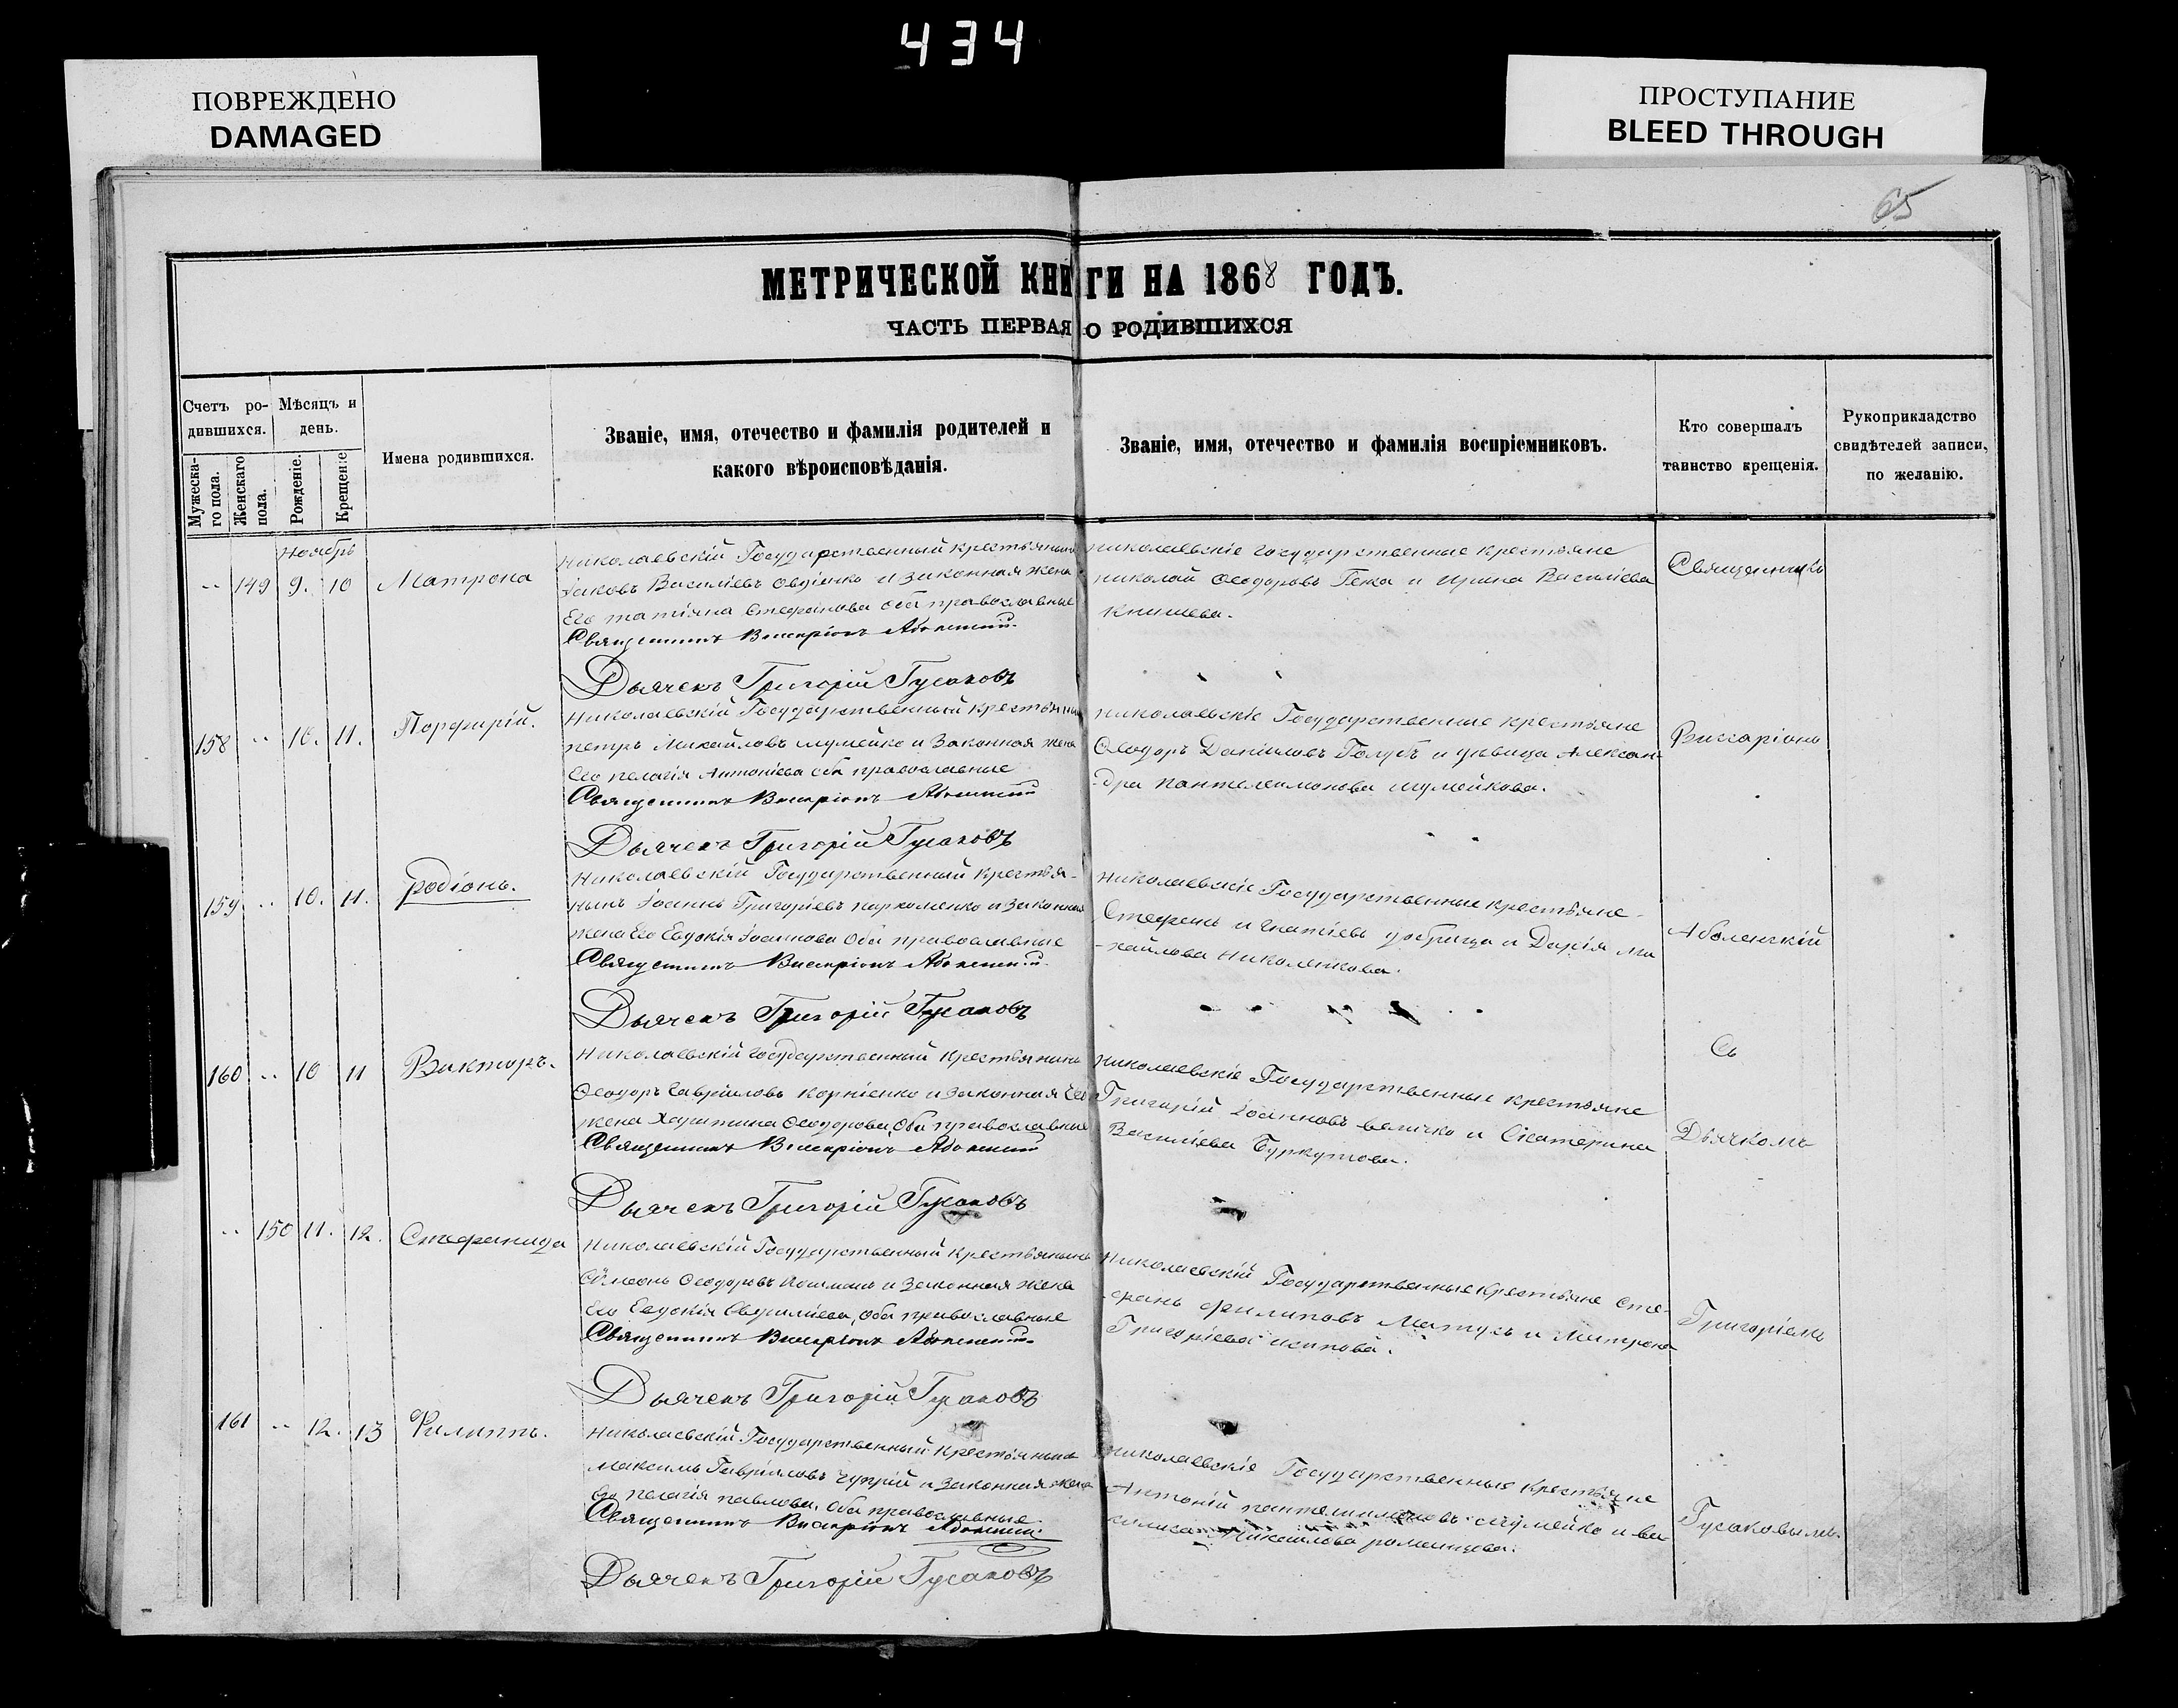 434
ПОВРЕЖДЕНО
DAMAGED
ПРОСТУПАНИЕ
BLEED THROUGH
65
МЕТРИЧЕСКОЙ КНИГИ НА 1868 ГОДЪ.
ЧАСТЬ ПЕРВАЯ О РОДИВШИХСЯ
Счетъ ро-
дившихся.
Мѣсяцъ и
день.
Мужеска-
го пола.
Женскаго
пола.
Рожденіе.
Крещеніе
Имена родившихся.
Званіе, имя, отечество и фамилія родителей и
какого вѣроисповѣданія.
Званіе, имя, отечество и фамилія воспріемниковъ.
Кто совершалъ
таинство крещенія.
Рукоприкладство
свидѣтелей записи,
по желанію.
Ноябрь
149 9. 10 Матрона
Николаевскій Государственный крестьянинъ
Іаковъ Василіевъ Овдіенко и законная жена
Его татіяна Стефанова оба православные
Священникъ Виссаріонъ
Дьячекъ Григорій Гусаковъ
николаевскіе государственные крестьяне
николай Ѳеодоровъ Гежа и Ирина Василіева
Книшева.
Священникъ
158 10. 11. Порфирій.
Николаевскій Государственный крестьянинъ
петръ Михайловъ шумейко и Законная жена
Его пелагія Антоніева оба православные
Священникъ Виссаріонъ
Дьячекъ Григорій Гусаковъ
николаевскіе Государственные крестьяне
Ѳеодоръ Даніиловъ Голубъ и дѣвица Алексан-
-дра пантелеимонова шумейкова.
Виссаріонъ
159 10. 11. родіонъ.
Николаевскій Государственный крестья-
нинъ Іоаннъ Григоріевъ пархоменко и законная
жена Его Евдокія Іоаннова Оба православные
Священникъ Виссаріонъ
Дьячекъ Григорій Гусаковъ
николаевскіе Государственные крестьяне
Стефанъ Игнатіевъ и Дарія Ми
-хайлова
Аболенскій
160 10 11 Викторъ.
Николаевскій государственный крестьянинъ
Ѳеодоръ Гавріиловъ Корніенко и законная Его
жена Ѳеодорова, Оба православные
Священникъ Виссаріонъ
Дьячекъ Григорій Гусаковъ
николаевскіе Государственные крестьяне
Григорій Іоанновъ величко и Екатерина
Василіева Буркутова.
Съ
Дьячкомъ
150 11. 12. Стефанида
Николаевскій Государственный крестьянинъ
Ѳеодоровъ и законная жена
Его Евдокія оба православные
Священникъ Виссаріонъ
Дьячекъ Григорій Гусаковъ
Николаевскій Государственные крестьяне Сте-
фанъ филиповъ Матусъ и Матрона
Григоріева
Григоріемъ
161 12. 13 Филиппъ.
Николаевскій Государственный крестьянинъ
Максимъ Гавріиловъ и законная жена
Его пелагія павлова, Оба православные
Священникъ Виссаріонъ
Дьячекъ Григорій Гусаковъ
николаевскіе Государственные крестьяне
Антоній пантелимоновъ шумейко и ва
Михаилова
Гусаковымъ.